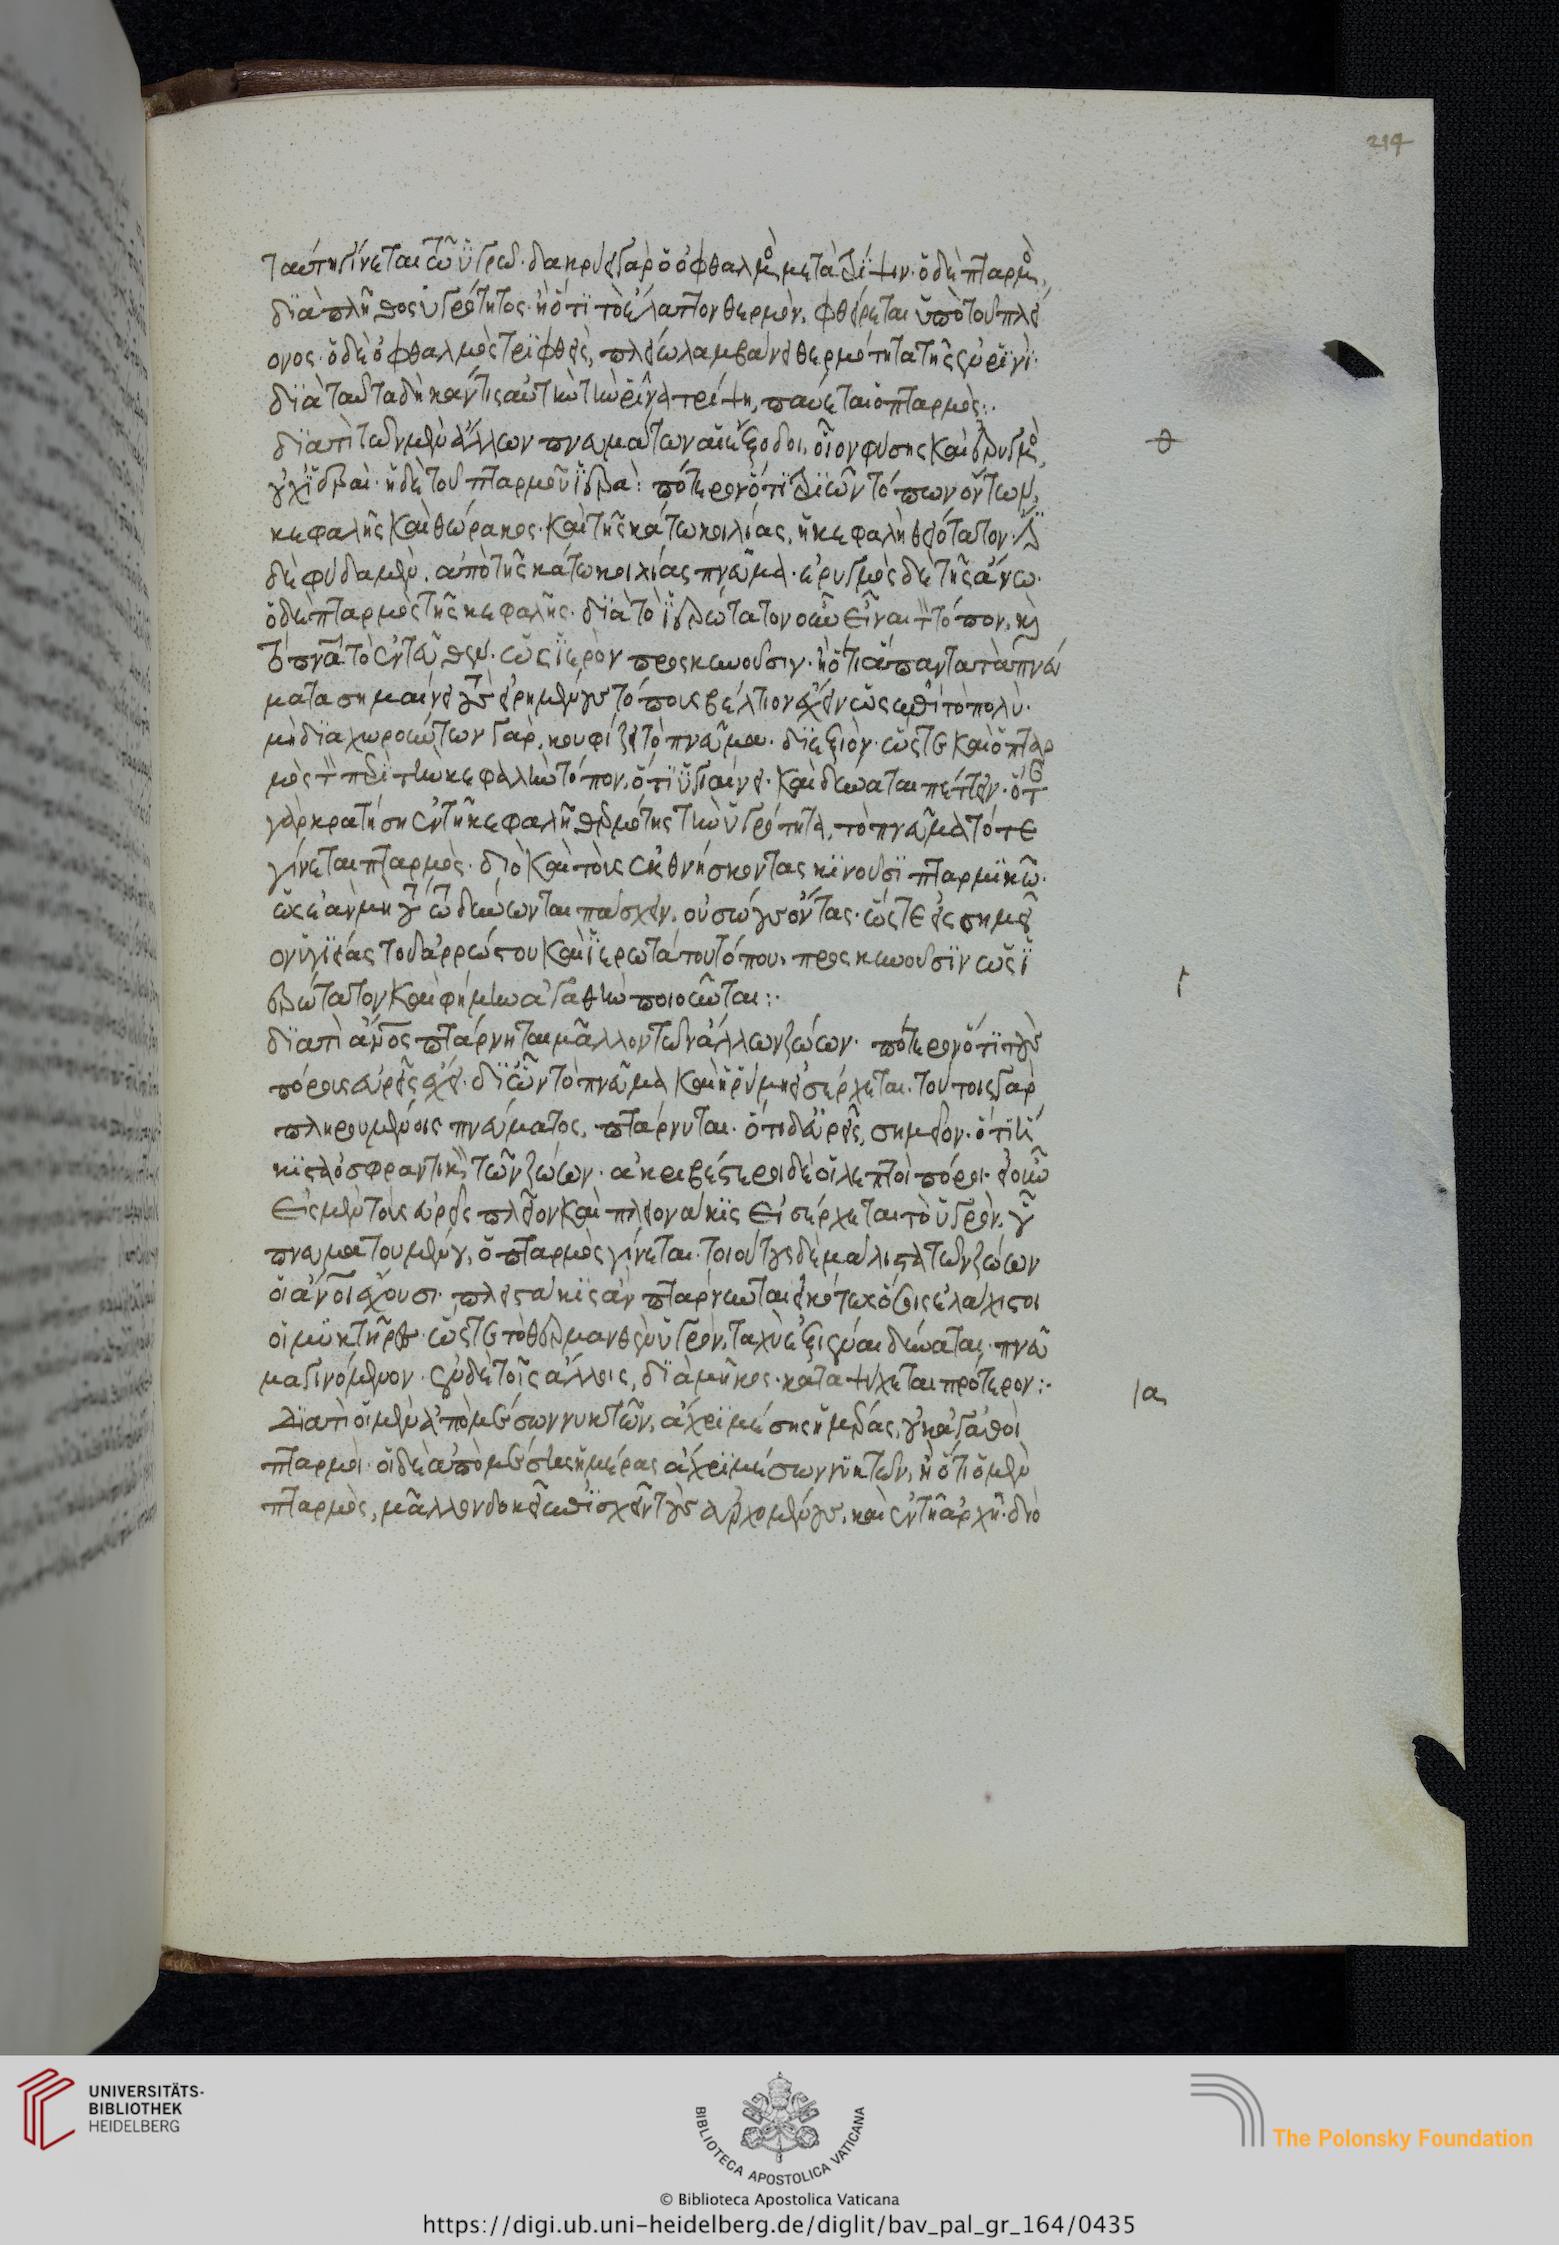 ταύτη γίνεται τῶν ὑγρῶν· δακρύει γὰρ ὁ ὀφθαλμὸς μετὰ τρίψιν· ὁ δὲ πταρμὸς,
διὰ πλῆθος ὑγρότητος· ἢ ὅτι τὸ ἔλαττον θερμὸν, φθείρεται ὑπὸ τοῦ πλεί
ονος· ὁ δὲ ὀφθαλμὸς τριφθεὶς, πλείω λαμβάνει θερμότητα τῆς ἐν ῥινὶ·
διὰ ταῦτα δὴ κἄν τις αὐτὴν τὴν ῥῖνα τρίψη, παύεται ὁ πταρμὸς:·
διατὶ τῶν μὲν ἄλλων πνευμάτων αἱ ἔξοδοι, οἷον φύσης καὶ ἐρυγμοῦ, θ
οὐχ ἱεραὶ· ἡ δὲ τοῦ πταρμοῦ ἱερὰ: πότερον ὅτι τριῶν τόπων ὄντων,
κεφαλῆς καὶ θώρακος· καὶ τῆς κάτω κοιλίας, ἡ κεφαλὴ θειότατον· ἔστι
δὲ φύσα μὲν, ἀπὸ τῆς κάτω κοιλίας πνεῦμα· ἐρυγμὸς δὲ τῆς ἄνω·
ὁ δὲ πταρμὸς τῆς κεφαλῆς· διὰ τὸ ἱερώτατον οὖν εἶναι τὸν τόπον, καὶ
τὸ πνεῦμα τὸ ἐντεῦθεν· ὡς ἱερὸν προσκυνοῦσιν· ἢ ὅτι ἅπαντα τὰ πνεύ
ματα σημαίνει τοὺς εἰρημένους τόπους βέλτιον ἔχειν ὡς ἐπὶ τὸ πολὺ·
μὴ διαχωρούντων γὰρ, κουφίζει τὸ πνεῦμα· διεξιὸν· ὥστε καὶ ὁ πταρ
μὸς τὸν περὶ τὴν κεφαλὴν τόπον, ὅτι ὑγιαίνει· καὶ δύναται πέττειν· ὅτε
γὰρ κρατήση ἐν τῆ κεφαλῆ θερμότης τὴν ὑγρότητα, τὸ πνεῦμα τότε
γίνεται πταρμὸς· διὸ καὶ τοὺς ἐκθνήσκοντας κινοῦσι πταρμικῶ·
ὡς ἐὰν μὴ τοῦτο δύνωνται πάσχειν, οὐ σωγους ὄντας· ὥστε εἰς σημεῖ
ον ὑγιείας τοῦ ἀρρώστου καὶ ἱερωτάτου τόπου, προσκυνοῦσιν ὡς ἱ
ερώτατον καὶ φήμην ἀγαθὴν ποιοῦνται:· ι
διατὶ ἄνθρωπος πτάρνηται μᾶλλον τῶν ἄλλων ζώων· πότερον ὅτι τοὺς
πόρους εὐρεῖς ἔχει· δι' ὧν τὸ πνεῦμα καὶ ἡ ῥύμη εἰσέρχεται· τούτοις γὰρ
πληρουμένοις πνεύματος, πτάρνυται· ὅτι δ' εὐρεῖς, σημεῖον· ὅτι ἥ
κιστα ὀσφραντικὸν τῶν ζώων· ἀκριβέστεροι δὲ οἱ λεπτοὶ πόροι· εἰ οὖν
εἰς μὲν τοὺς εὐρεῖς πλεῖον καὶ πλεονάκις εἰσέρχεται τὸ ὑγρὸν, οὗ
πνευματουμένου, ὁ πταρμὸς γίνεται· τοιούτους δὲ μάλιστα τῶν ζώων
οἱ ἄνθρωποι ἔχουσι· πλειστάκις ἂν πτάρνυνται εἰκότως· ὅσοις ἐλάχιστοι
οἱ μυκτῆρες· ὥστε τὸ θερμανθὲν ὑγρὸν, ταχὺ ἐξιέναι δύναται, πνεῦ
μα γινόμενον· ἐν δὲ τοῖς ἄλλοις, διὰ μῆκος· καταψύχεται πρότερον:·
Διατὶ οἱ μὲν ἀπὸ μέσων νυκτῶν, ἄχρι μέσης ἡμέρας, οὐκ ἀγαθοὶ ια
πταρμοὶ· οἱ δὲ ἀπὸ μέσης ἡμέρας ἄχρι μέσων νυκτῶν, ἢ ὅτι ὁ μὲν
πταρμὸς, μᾶλλον δοκεῖ ἐπισχεῖν τοὺς ἀρχομένους, καὶ ἐν τῆ ἀρχῆ· διὸ
214
UNIVERSITÄTS-
BIBLIOTHEK
HEIDELBERG
BIBLIOTECA APOSTOLICA VATICANA
The Polonsky Foundation
© Biblioteca Apostolica Vaticana
https://digi.ub.uni-heidelberg.de/diglit/bav_pal_gr_164/0435